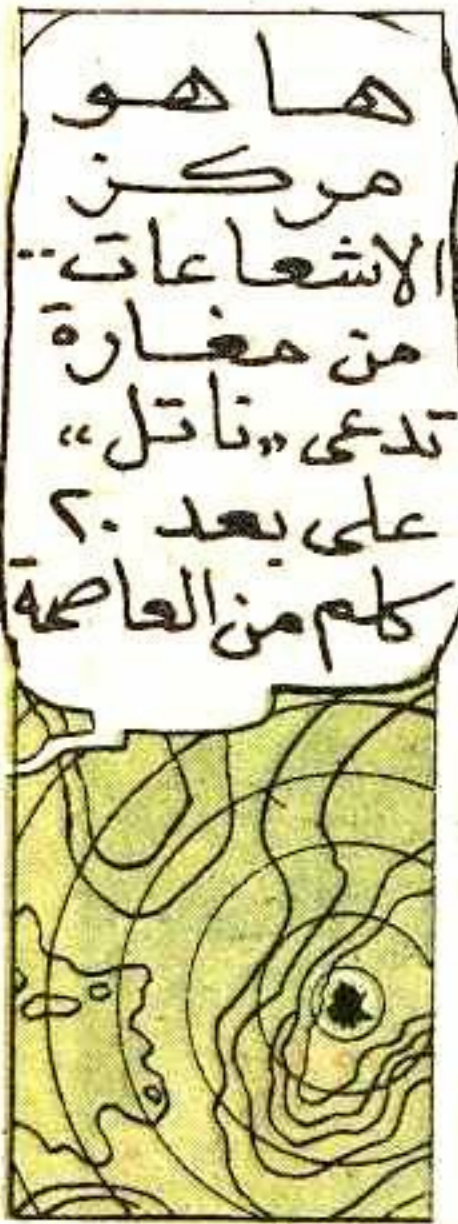 ها هو
مركز
الاشعاعات..
من مغارة
تدعى «ناتل»
على بعد ٢٠
كلم من العاصمة